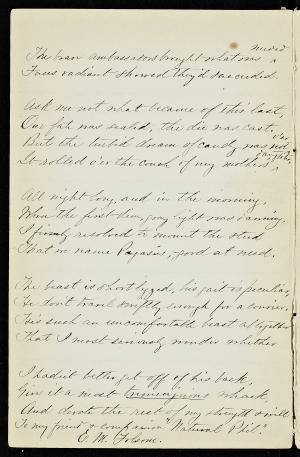 The brave ambassadors brought what was needed
Faces radiant showed they'd succeeded.
Ask me not what became of this last,
Our fate was sealed, the die was cast.
But the turbid dream of candy was not o'er
It rolled o'er the couch of my mother's daughter
All night long, and in the morning,
When the first dim, gray light was dawning,
I firmly resolved to mount the steed
That in name Pegasus, good at need.
The beast is short legged, his gait is peculiar,
He don't travel swiftly enough for a courier.
He's such an uncomfortable beast altogether
That I most seriously wonder whether
I hadn't better get off of his back,
Give it a most tremendous whack,
And devote the rest of my strength & will
To my friend & companion "Natural Phil."
E. M. Folsome.